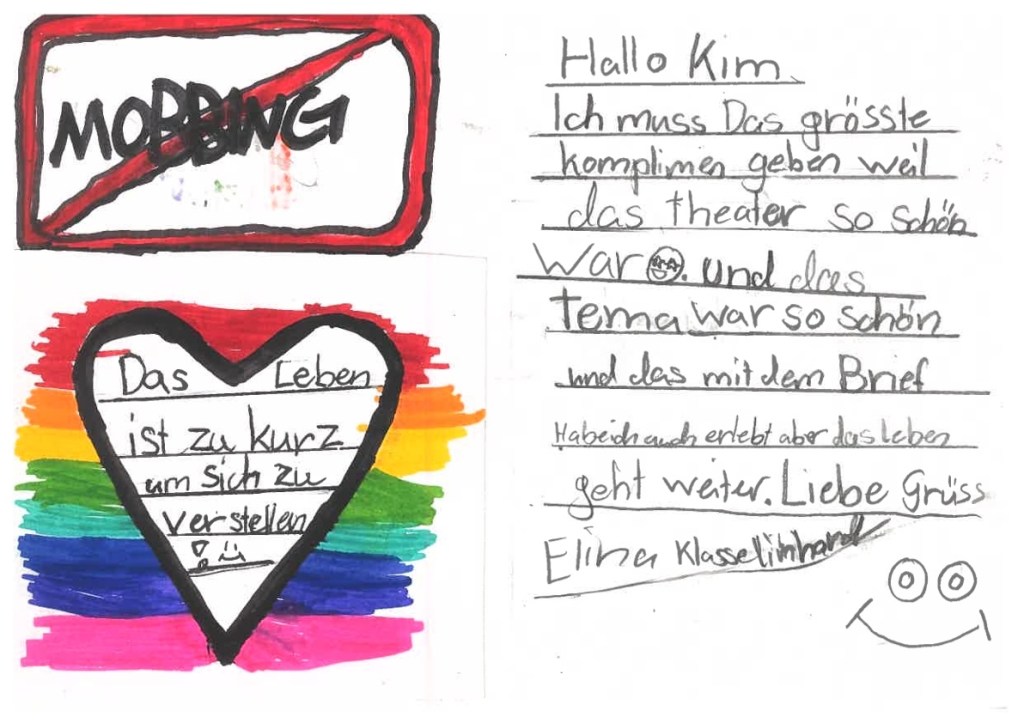 MOBBING
Das Leben
ist zu kurz
um sich zu
verstellen
!
Hallo Kim
Ich muss Das grösste
komplimen geben weil
das theater so schön
war. und das
tema war so schön
und das mit dem Brief
Habe ich auch erlebt aber das Leben
geht weiter. Liebe Grüss
Elina